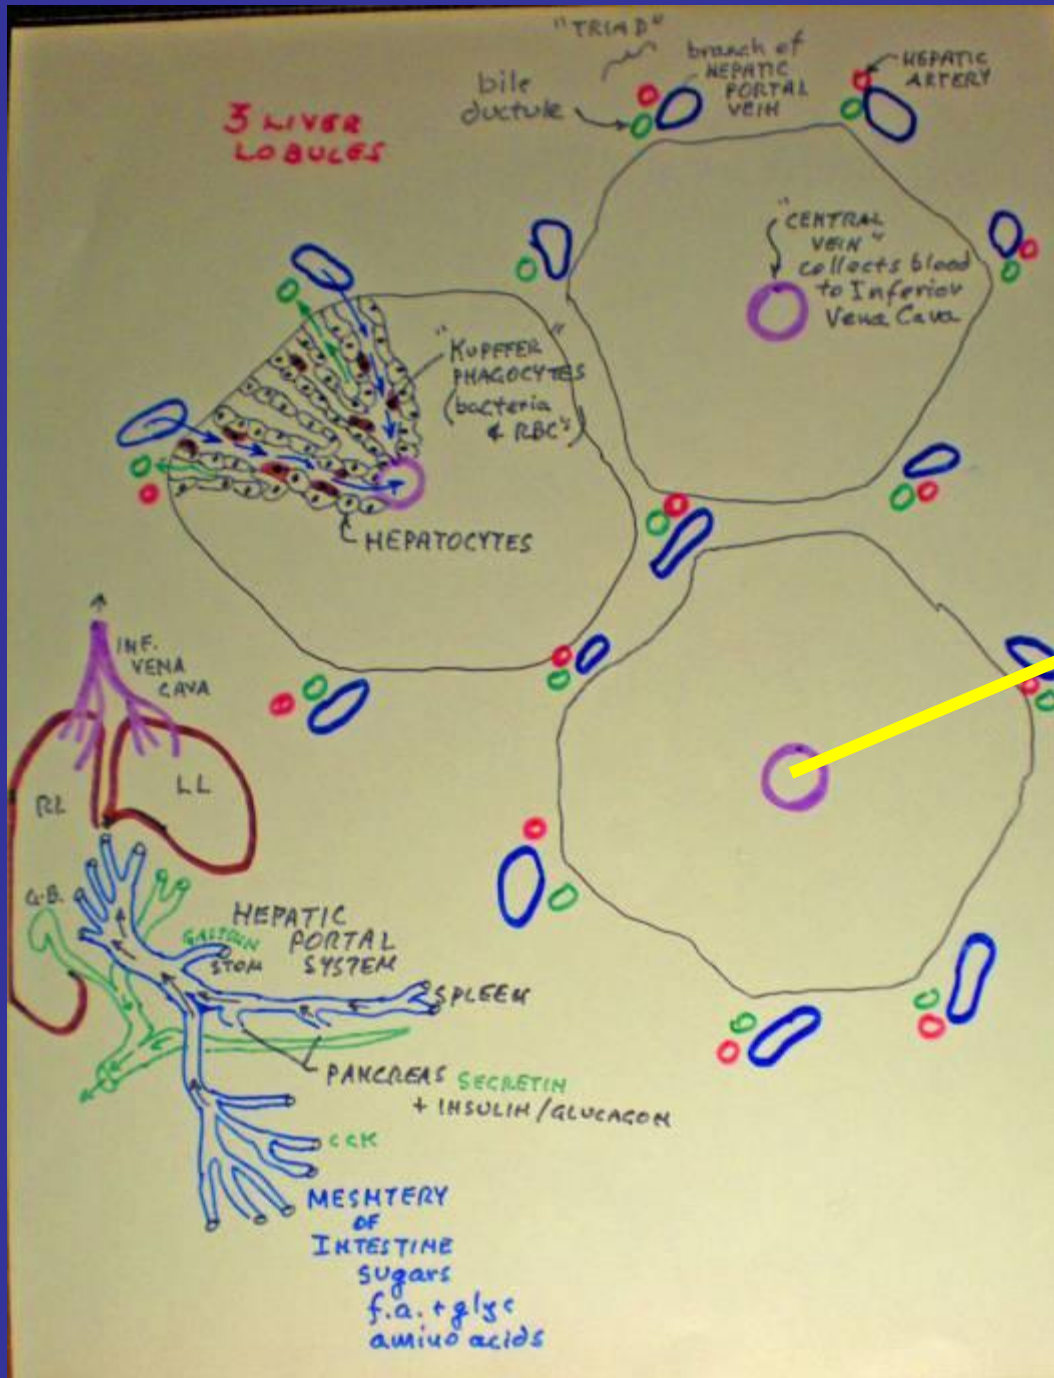 "TRIAD"
bile
ductule
branch of
HEPATIC
PORTAL
VEIN
HEPATIC
ARTERY
3 LIVER
LOBULES
"CENTRAL
VEIN"
collects blood
to Inferior
Vena Cava
"KUPFFER"
PHAGOCYTES
(bacteria
& RBC's)
HEPATOCYTES
INF.
VENA
CAVA
RL
LL
G.B.
HEPATIC
PORTAL
SYSTEM
STOM
SPLEEN
PANCREAS SECRETIN
+ INSULIN/GLUCAGON
CCK
MESNTERY
OF
INTESTINE
sugars
f.a. + glyc
amino acids